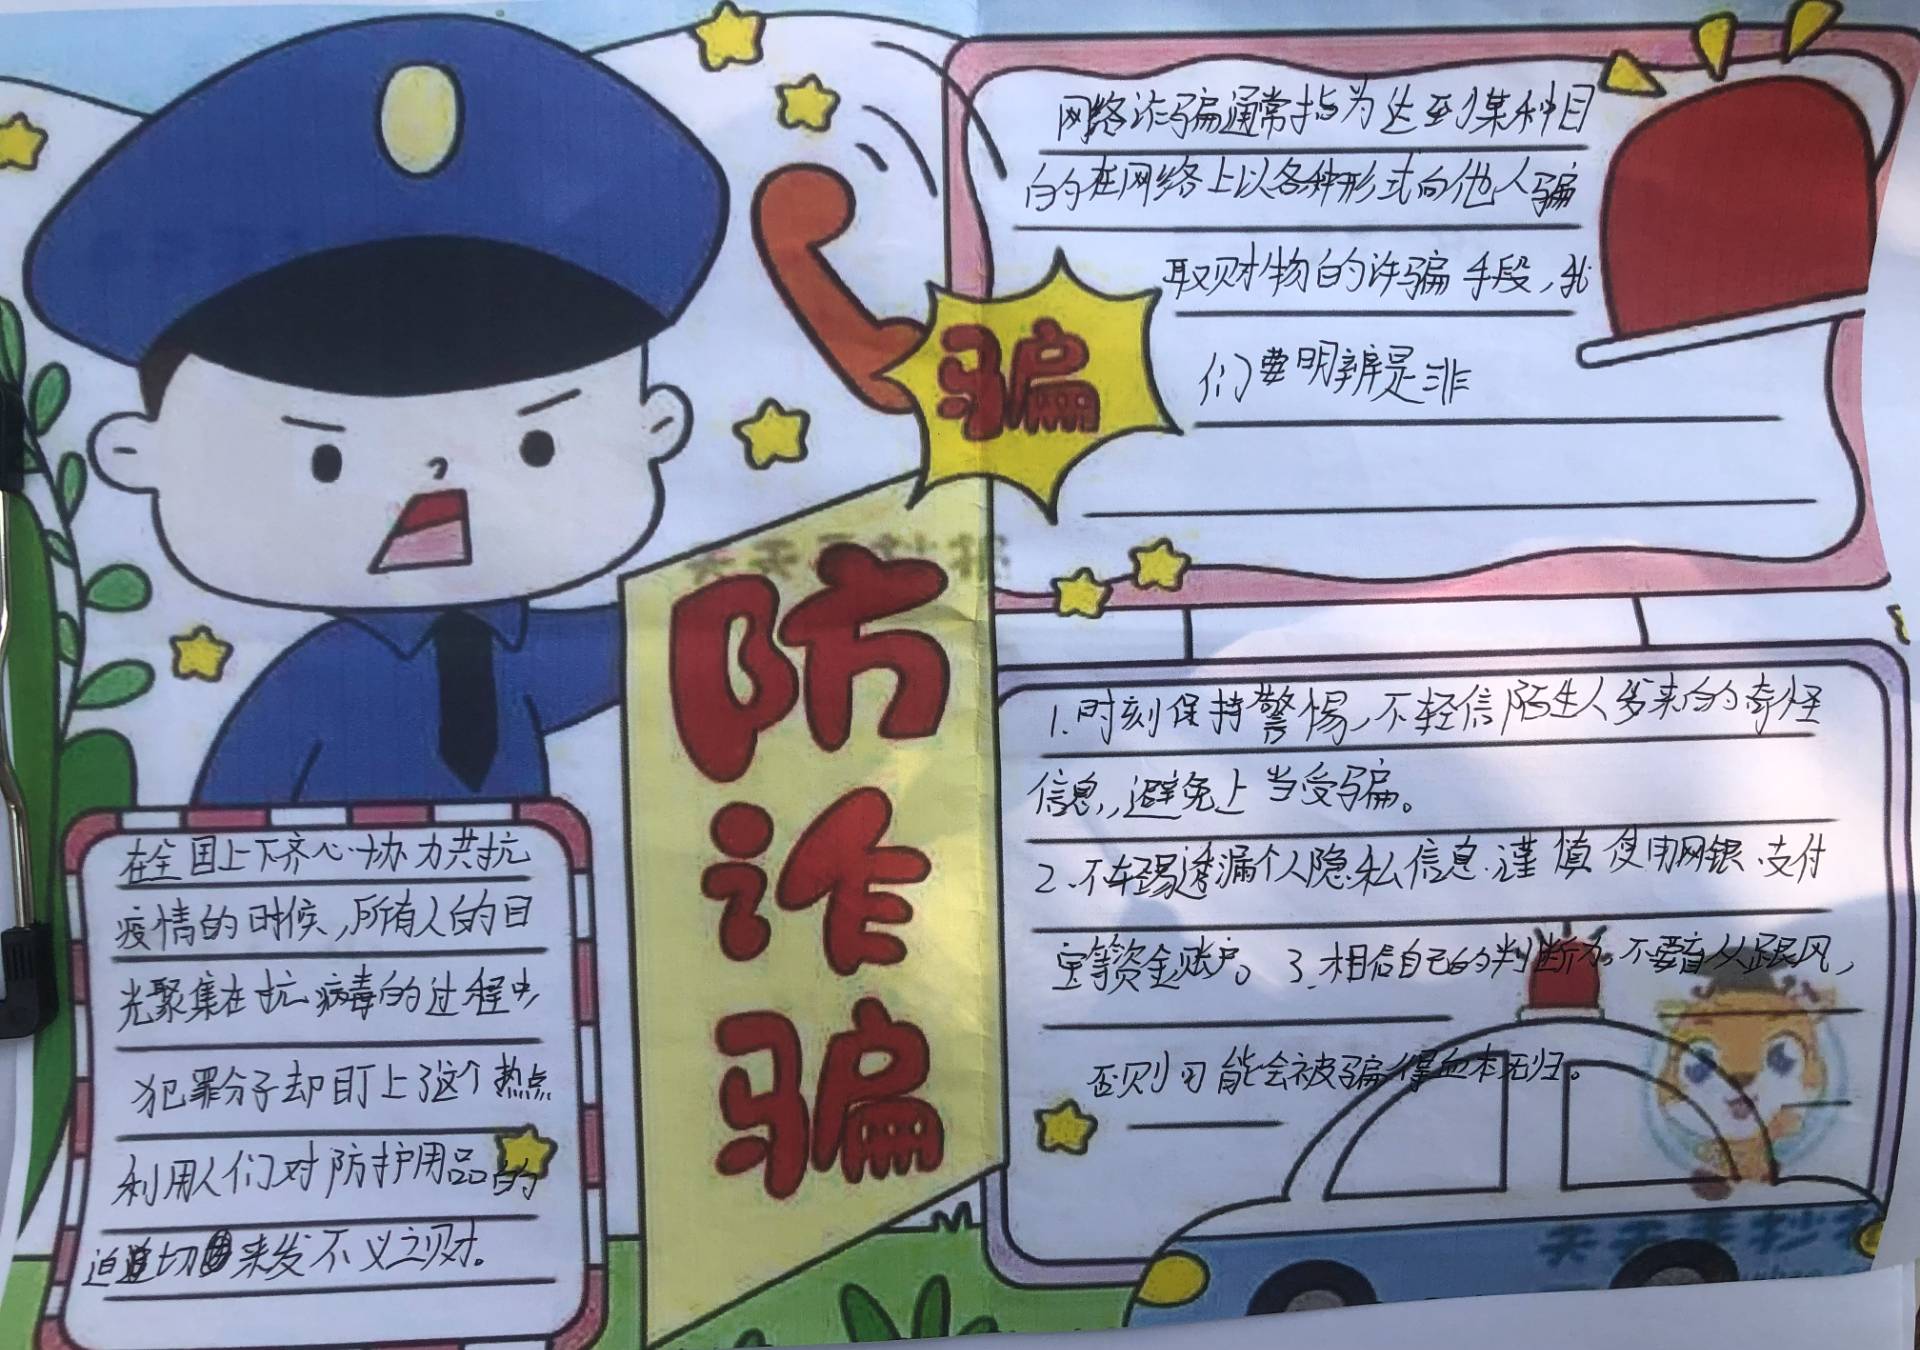 骗
防
诈
骗
网络诈骗通常指为达到某种目
的在网络上以各种形式向他人骗
取财物的诈骗手段，我
们要明辨是非
1.时刻保持警惕，不轻信陌生人多来的奇怪
信息，避免上当受骗。
2、不轻易透漏个人隐私信息.谨慎使用网银、支付
宝等资金账户。3.相信自己的判断力。不要盲从跟风，
否则可能会被骗得血本无归。
在全国上下齐心协力共抗
疫情的时候，所有人的目
光聚集在抗病毒的过程中
犯罪分子却盯上了这个热点
利用人们对防护用品的
迫切来发不义之财。